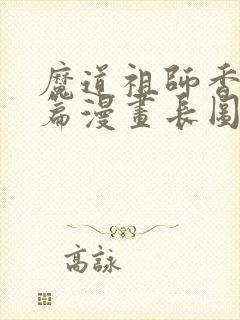 魔道祖師香
篇漫畫長圖
高詠